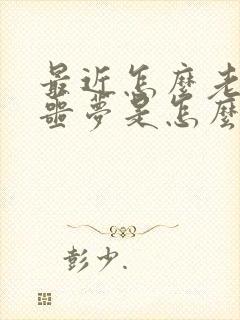 最近怎麼老
噩夢是怎麼
彭少.